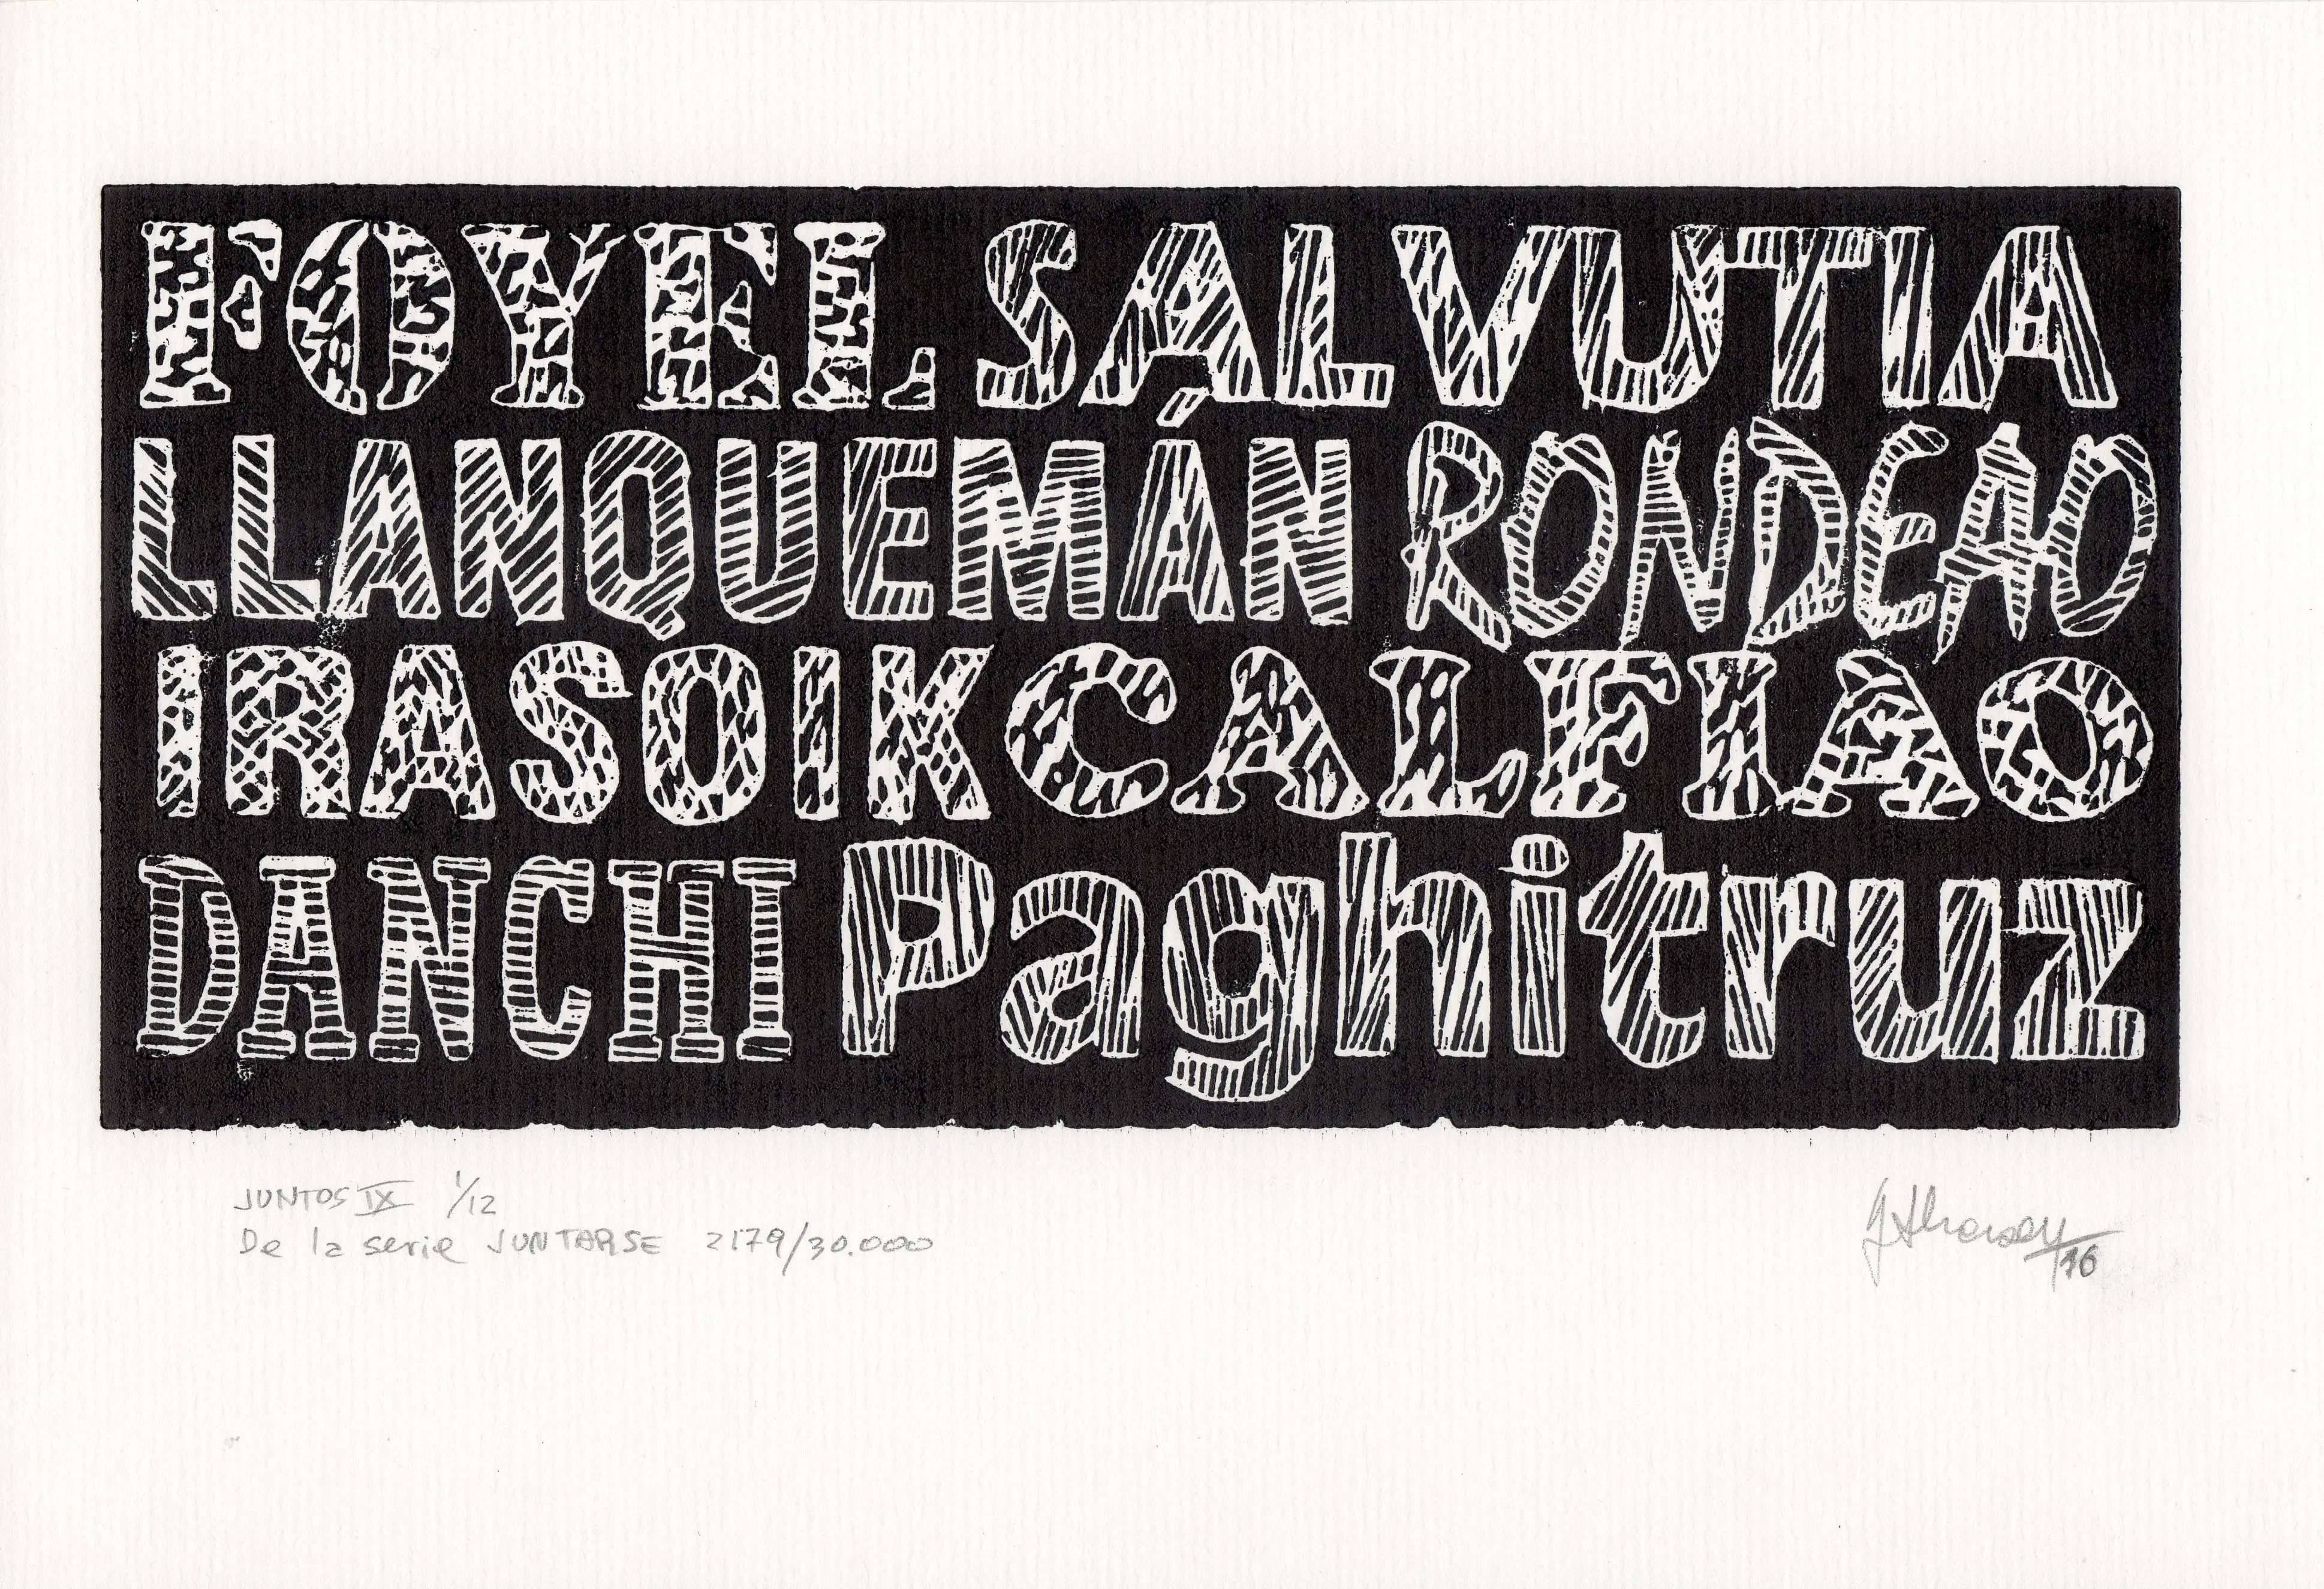 FOYEL SALVUTIA
LLANQUEMÁN RONDEAO
IRASOIK CALFIAO
DANCHI Paghitruz
JUNTOS IX 1/12
De la serie JUNTARSE 2179/30.000
/16